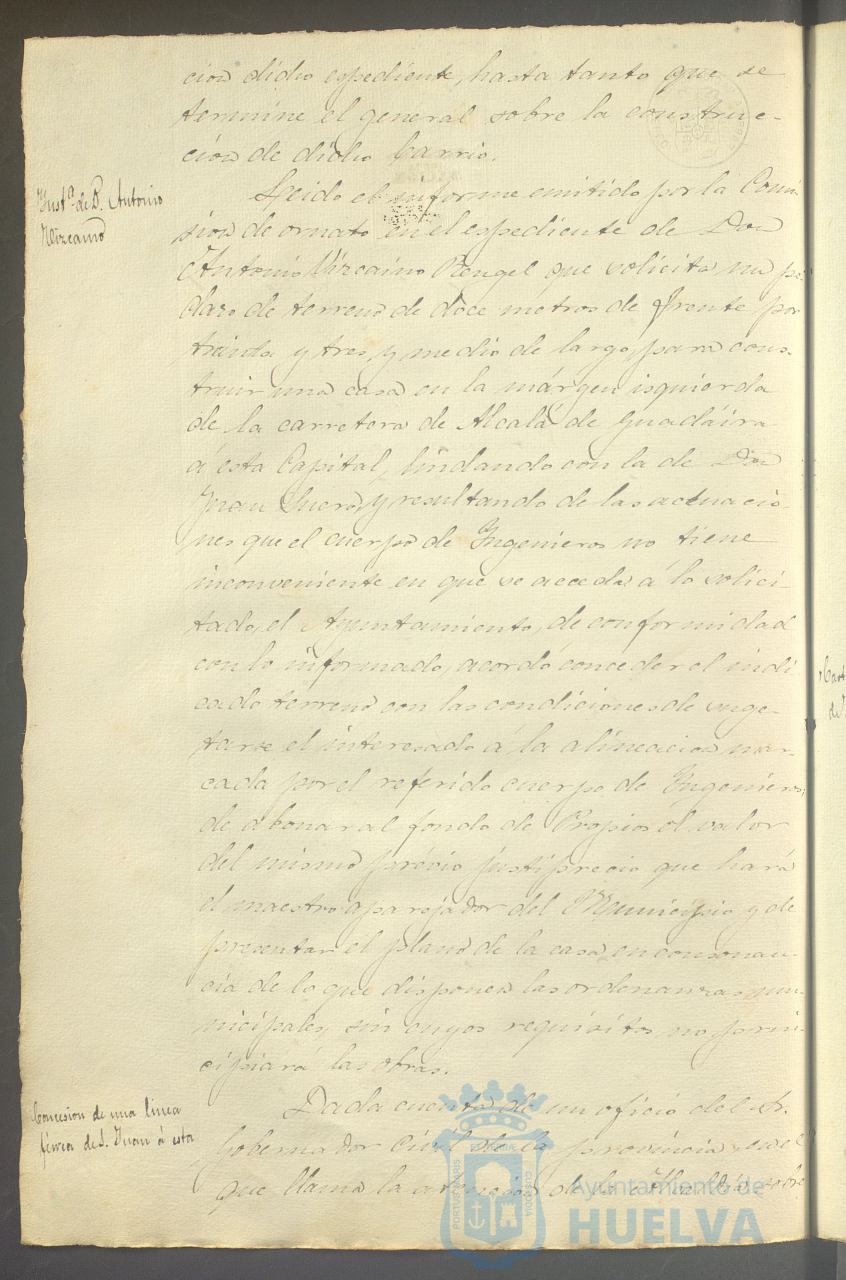 cion dicho espediente, hasta tanto que se
termine el general sobre la construc-
cion de dicho barrio.
Inst.ª de D. Antonio
Vizcaino
Leido el informe emitido por la Comi-
sion de ornato en el espediente de Don
Antonio Vizcaino Rengel que solicita un pe-
dazo de terreno de doce metros de frente por
treinta y tres y medio de largo, para cons-
truir una casa en la márgen izquierda
de la carretera de Alcalá de Guadáira
á esta Capital, lindando con la de Don
Juan Suero, y resultando de las actuacio-
nes que el cuerpo de Ingenieros no tiene
inconveniente en que se acceda á lo solici-
tado, el Ayuntamiento, de conformidad
con lo informado, acordó conceder el indi-
cado terreno con las condiciones de suge-
tarse el interesado á la alineacion mar-
cada por el referido cuerpo de Ingenieros,
de abonar al fondo de Propios el valor
del mismo prévio justiprecio que hará
el maestro aparejador del Municipio y de
presentar el plano de la casa, en consonan-
cia de lo que disponen las ordenanzas mu-
nicipales, sin cuyos requisitos no prin-
cipiará las obras.
Concesion de una linea
férrea de S. Juan á esta
Dada cuenta de un oficio del Sr.
Gobernador Civil de la provincia, en el
que llama la atencion de la Alcaldia sobre
PORTUS MARIS
ET TERRE
CUSTODIA
Ayuntamiento de
HUELVA